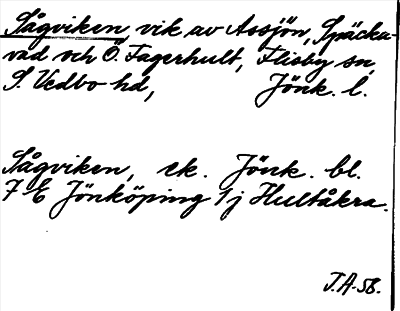 Sågviken vik av Assjön, Späcka-
vad och Ö. Fagerhult, Flisby sn,
S. Vedbo hd, Jönk. l.
Sågviken, ek. Jönk. bl.
7 E Jönköping 1 j Hultåkra.
J.A-58.